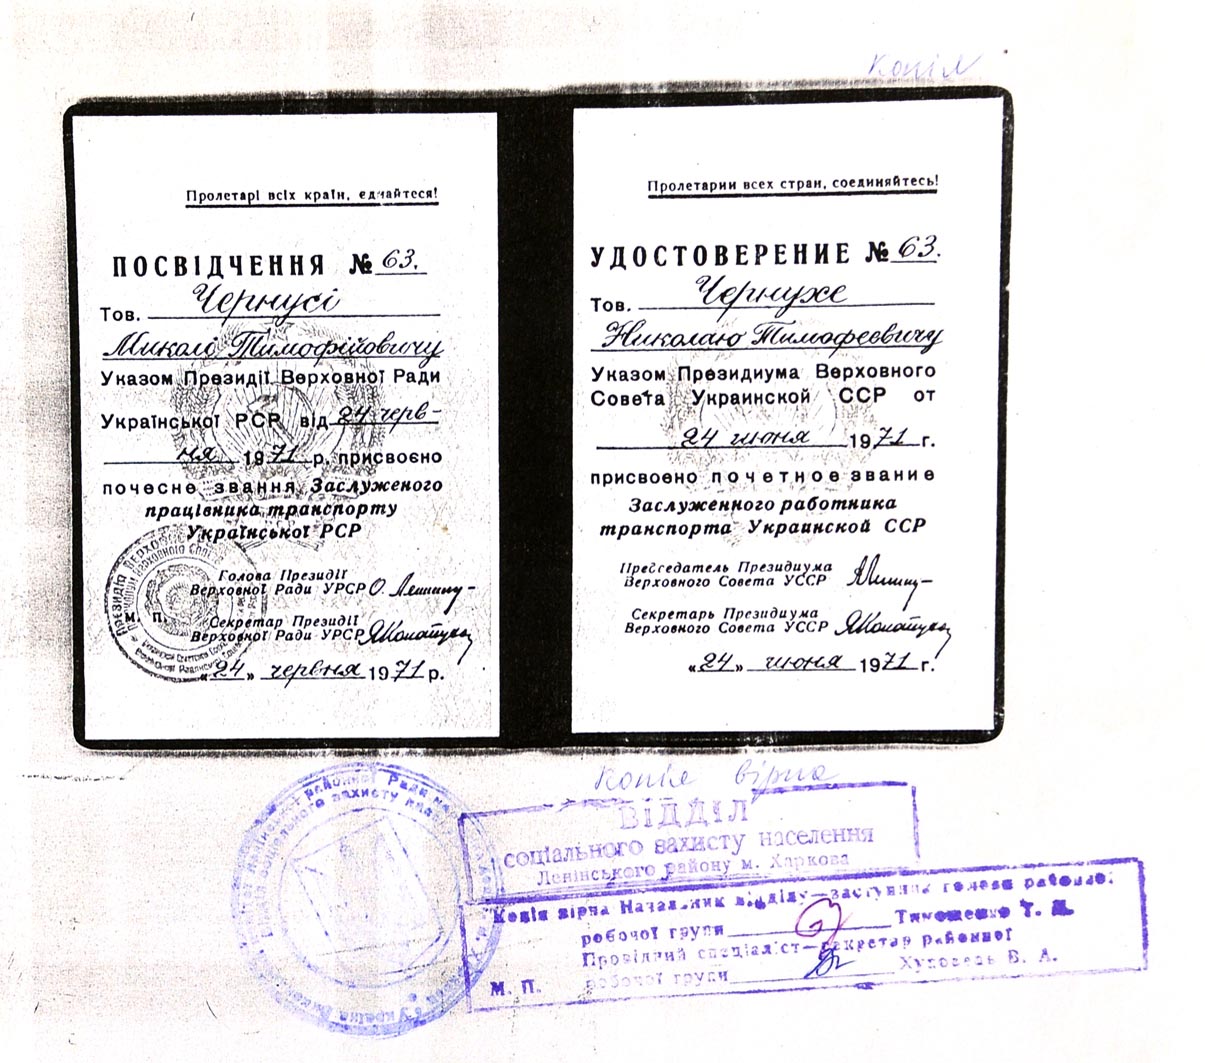 Копія
Пролетарі всіх країн, єднайтеся!
ПОСВІДЧЕННЯ № 63.
Тов. Чернусі
Миколі Тимофійовичу
Указом Президії Верховної Ради
Української РСР від 24 черв-
ня 1971 р. присвоєно
почесне звання Заслуженого
працівника транспорту
Української РСР
Голова Президії
Верховної Ради УРСР
М. П.
Секретар Президії
Верховної Ради УРСР
«24» червня 1971 р.
Пролетарии всех стран, соединяйтесь!
УДОСТОВЕРЕНИЕ № 63.
Тов. Чернухе
Николаю Тимофеевичу
Указом Президиума Верховного
Совета Украинской ССР от
24 июня 1971 г.
присвоено почетное звание
Заслуженного работника
транспорта Украинской ССР
Председатель Президиума
Верховного Совета УССР
Секретарь Президиума
Верховного Совета УССР
«24» июня 1971 г.
Копія вірна
ВІДДІЛ
соціального захисту населення
Ленінського району м. Харкова
Копія вірна Начальник відділу—заступник голови районної
робочої групи Тимошенко Т. М.
Провідний спеціаліст—секретар районної
М. П. робочої групи В. А.